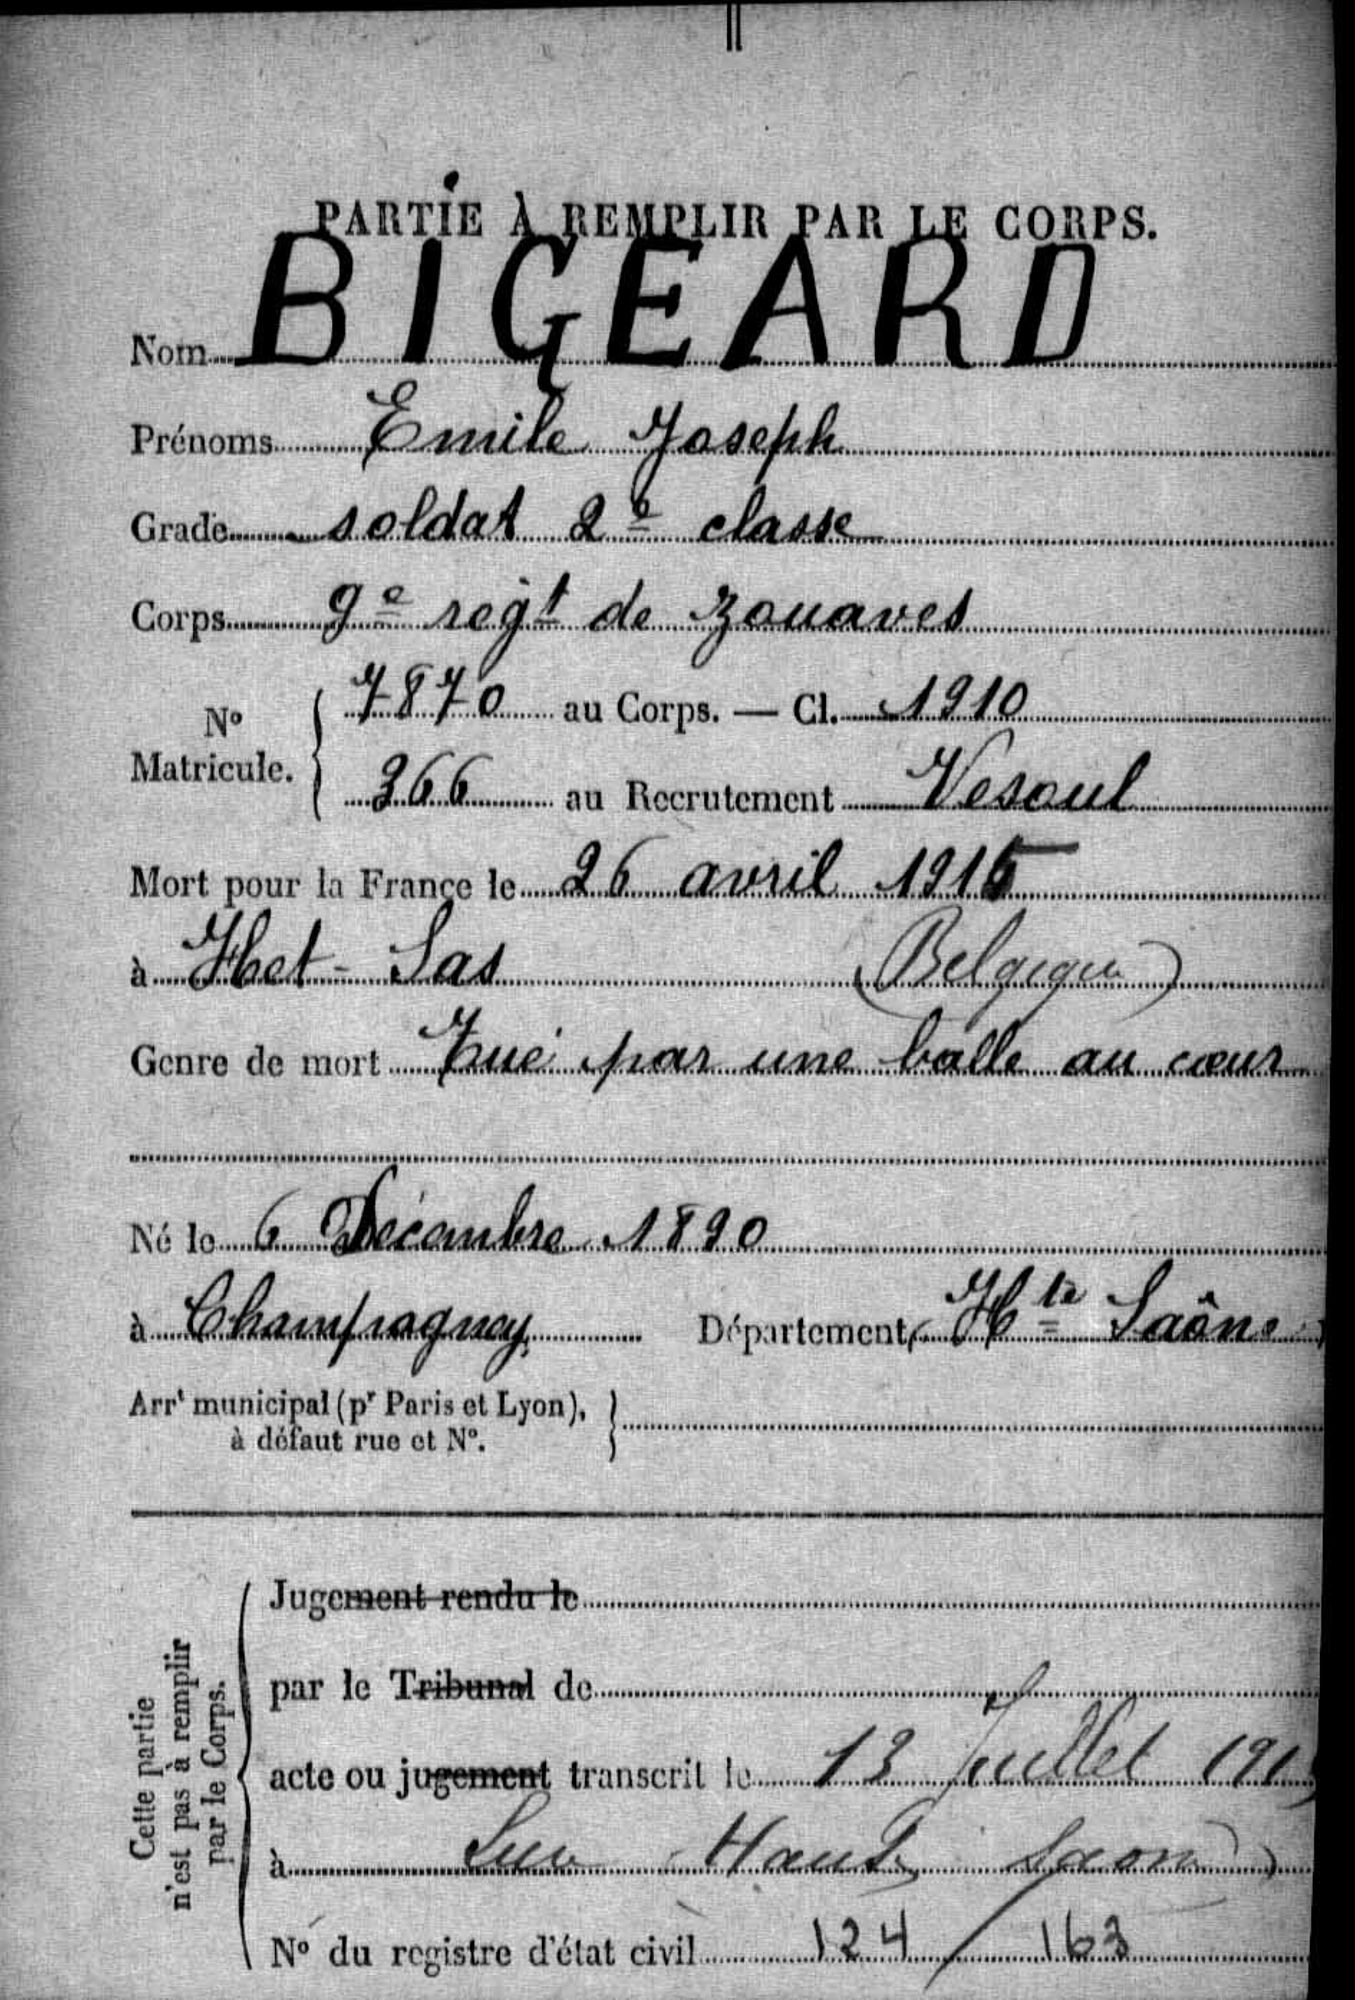 PARTIE À REMPLIR PAR LE CORPS.
Nom BIGEARD
Prénoms Emile Joseph
Grade soldat 2e classe
Corps 9e régt de zouaves
No Matricule. { 7870 au Corps. — Cl. 1910
366 au Recrutement Vesoul
Mort pour la France le 26 avril 1915
à Het-Sas (Belgique)
Genre de mort Tué par une balle au cœur
Né le 6 Décembre 1890
à Champagney Département Hte Saône
Arrt municipal (pr Paris et Lyon), à défaut rue et No. }
Cette partie n'est pas à remplir par le Corps.
Jugement rendu le
par le Tribunal de
acte ou jugement transcrit le 13 Juillet 1915
à Haute Saone)
No du registre d'état civil 124 / 163